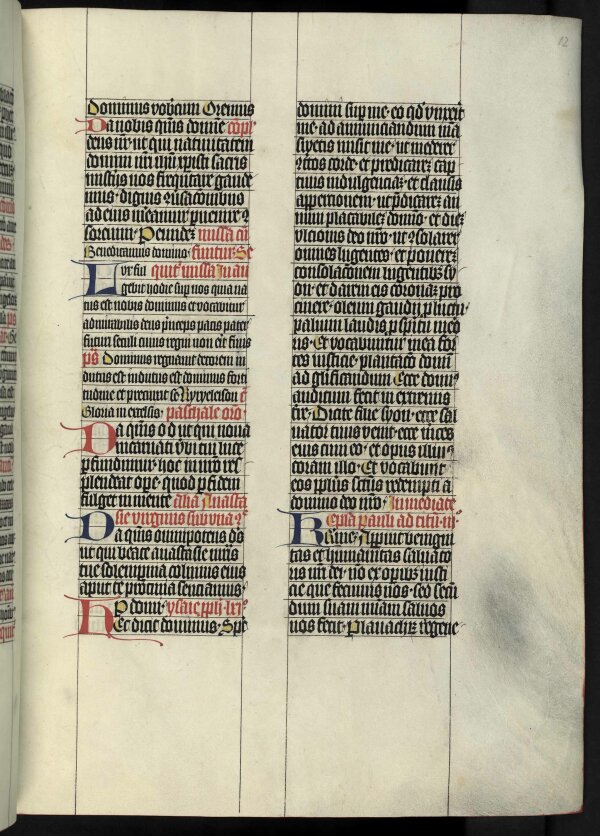 12
Dominus vobiscum Oremus
Da nobis q̄s domine
deus nr̄ ut qui nativitatem
domini nr̄i ihū xpisti sacris
nos frequentare gaude
mus · dignis conversacionibus
ad eius mereamur pervenire
missa
Benedicamus domino · finitur · Se
Lux ful quit missa
gebit hodie sup nos quia na
tus est nobis dominus et vocabitur
admirabilis deus princeps pacis pater
futuri seculi cuius regni non erit finis
p̄s Dominus regnavit decorem in
dutus est indutus est dominus forti
tudine et precinxit se
Gloria in excelsis · paschale oro ·
Da q̄s o d ut qui nova
incarnati verbi tui luce
perfundimur · hoc in nr̄o res
plendeat ope · quod p fidem
fulget in mente alia Anasta
sie virginis
Da q̄s omnipotens ds
ut qui beate anastasie
tue solempnia colimus eius
apud te
domi · ysaie pph · lxi
Hec dicit dominus · Spc
domini sup me · eo qd unxerit
me · ad annunciandum ma
suetis misit me · ut mederer
corde · et predicarem cap
tivis indulgenciam · et clausis
apercionem · ut predicarem an
num placabilem domino · et diem
ulcionis deo nr̄o · ut consolarer
omnes lugentes · et ponerem
consolacionem lugentibus sy
on · et darem eis coronam pro
cinere · oleum gaudii pro luctu ·
pallium laudis p spiritu mero
ris · Et vocabuntur in ea for
tes iusticie · plantacio domini
ad glificandum · Ecce dominus
auditum fecit in extremis
terre · Dicite filie syon · ecce sal
vator tuus venit · ecce merces
eius cum eo · et opus illius
coram illo · Et vocabunt
eos pplus scūs redempti a
domino deo nr̄o · Inmediate
Epla pauli ad titū · iii ·
Karme · Apparuit benigni
tas et humanitas salvato
ris nr̄i dei · nō ex operibus iusti
cie que fecimus nos · sed secū
dum suam mīam salvos
nos fecit · P lavachrum regene